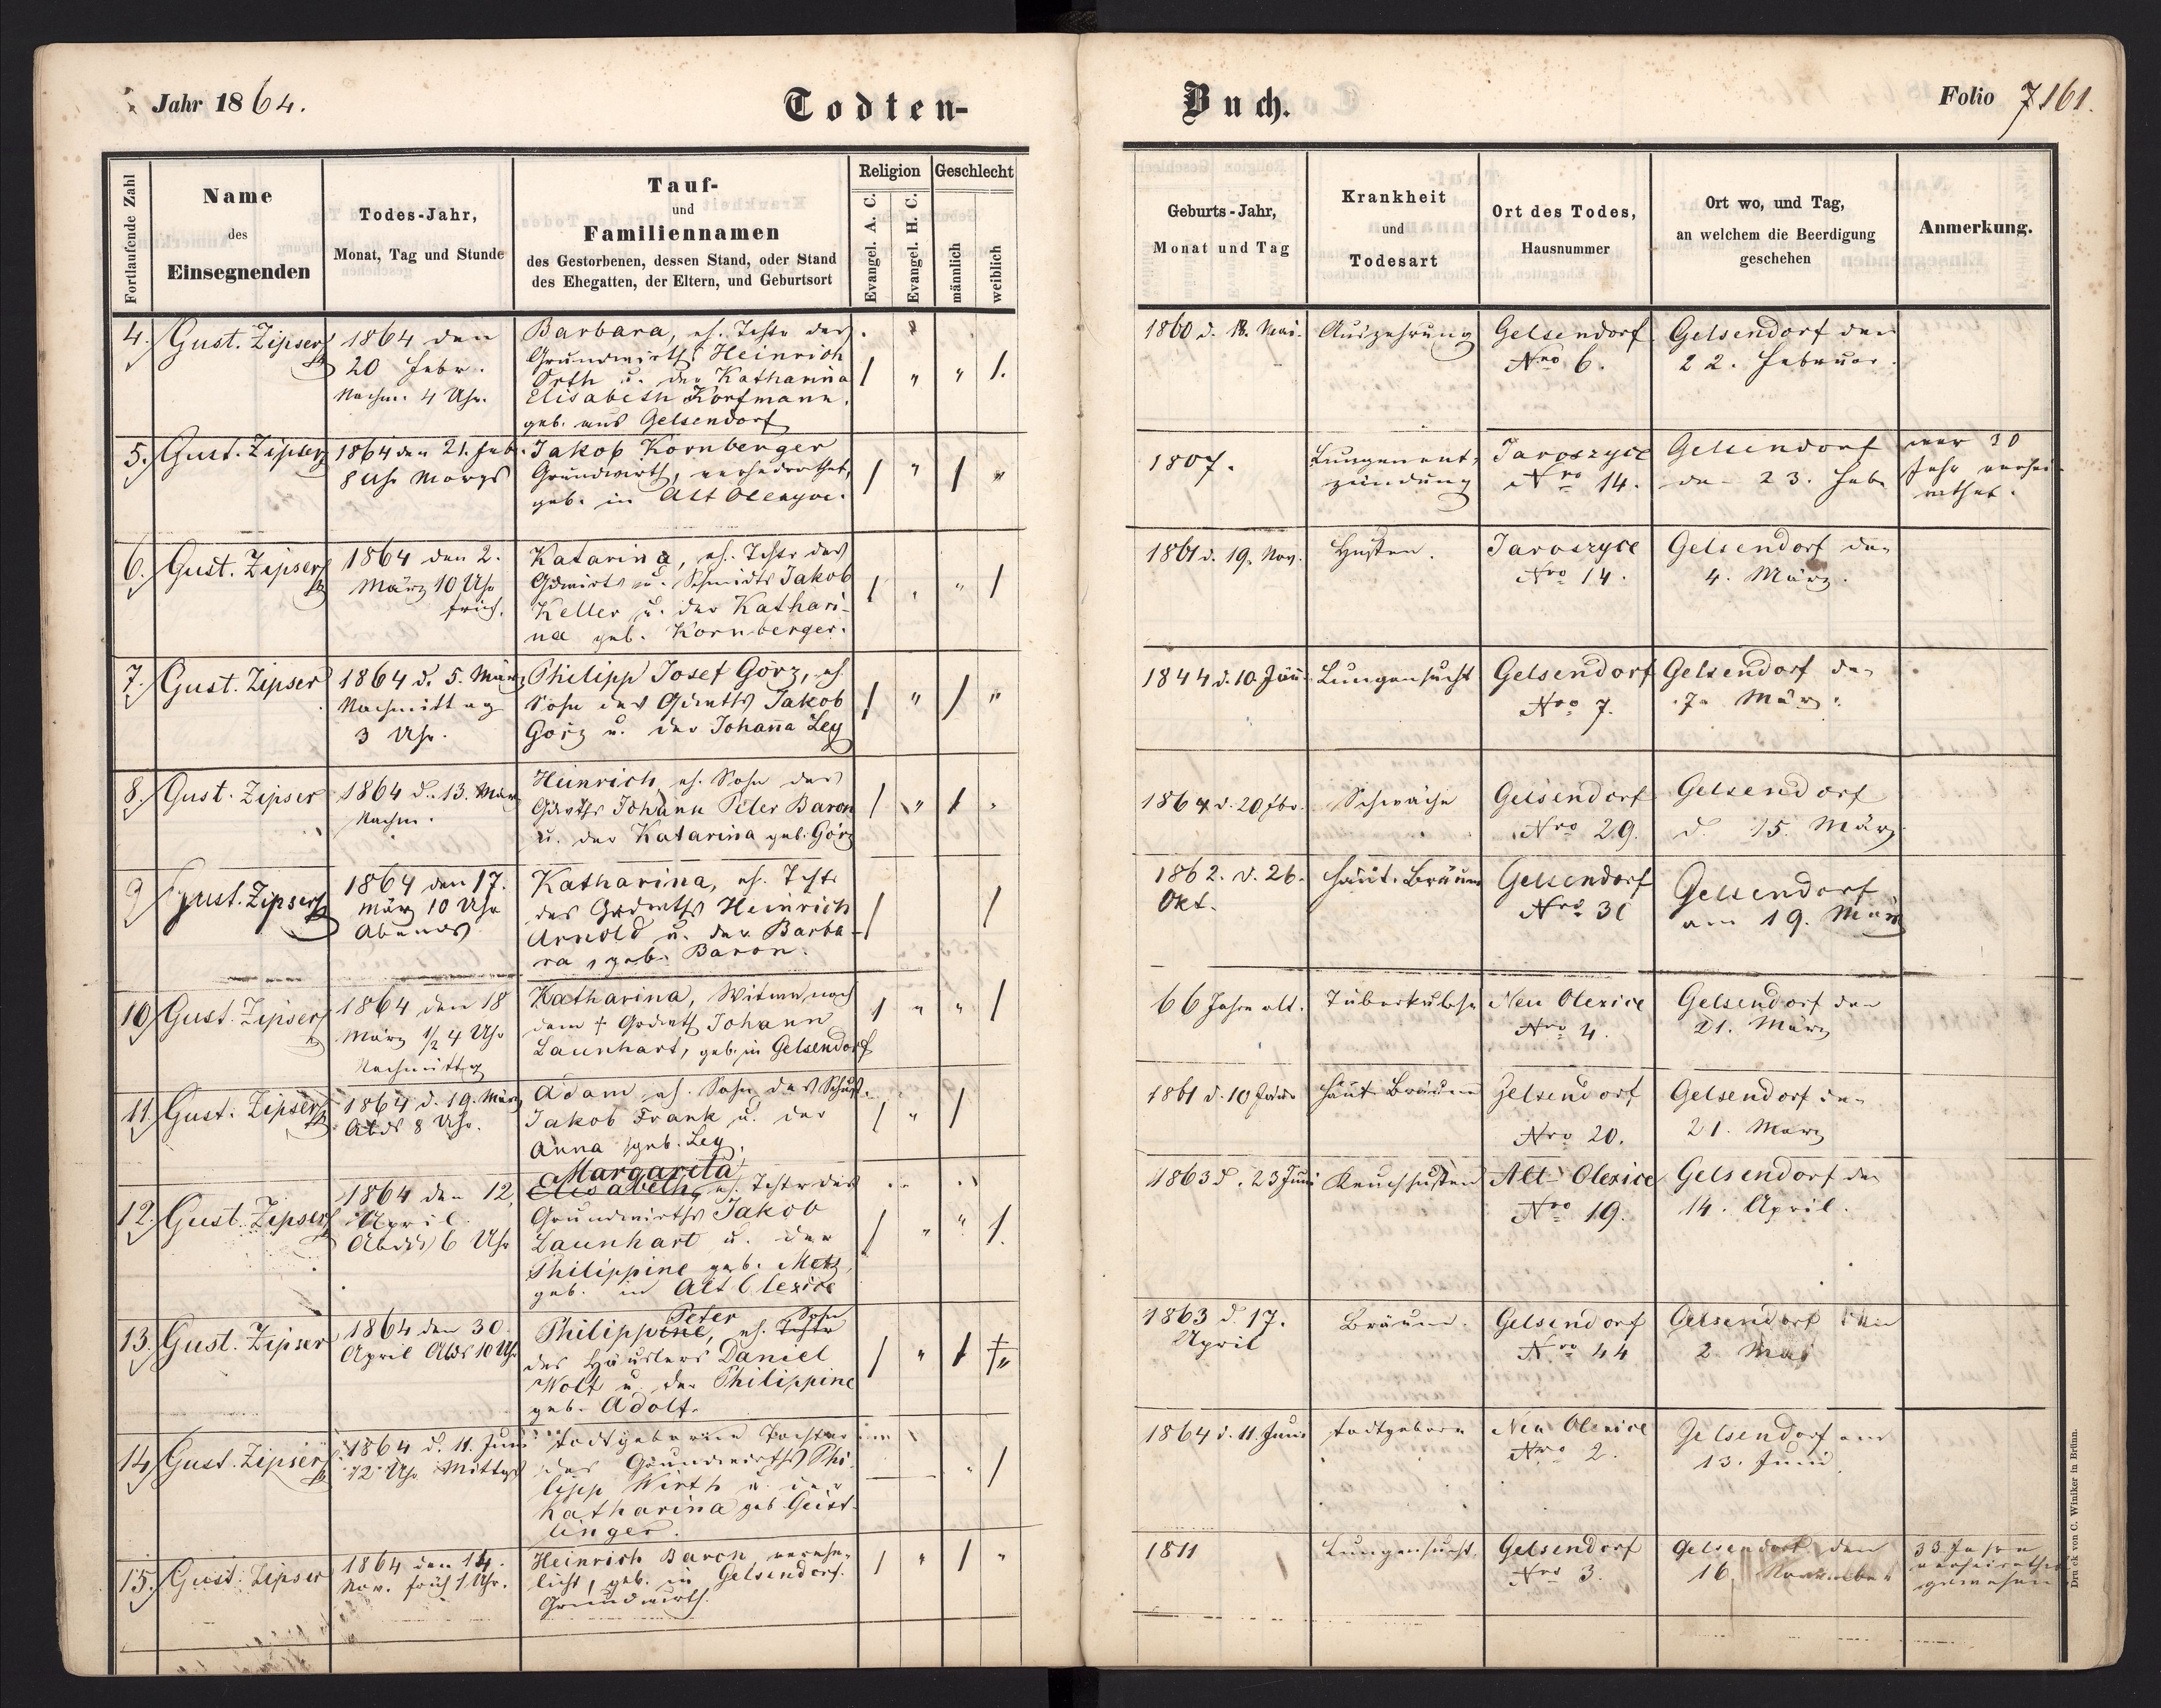 Jahr 1864.
Todten-
Buch.
Folio 7 161.
Fortlaufende Zahl
Name
des
Einsegnenden
Todes-Jahr,
Monat, Tag und Stunde
Tauf-
und
Familiennamen
des Gestorbenen, dessen Stand, oder Stand
des Ehegatten, der Eltern, und Geburtsort
Religion
Evangel. A. C.
Evangel. H. C.
Geschlecht
männlich
weiblich
Geburts-Jahr,
Monat und Tag
Krankheit
und
Todesart
Ort des Todes,
Hausnummer
Ort wo, und Tag,
an welchem die Beerdigung
geschehen
Anmerkung.
4.
Gust. Zipser
1864 den
20 Febr.
Nachm. 4 Uhr.
Barbara, eh. Tchtr des
Grundwirths Heinrich
Orth u. der Katharina
Elisabeth Korfmann,
geb. aus Gelsendorf
/ " " /.
1860 d. 18. Mai.
Auszehrung
Gelsendorf
Nro 6.
Gelsendorf den
22. Februar.
5.
Gust. Zipser
1864 den 21. Feb.
8 Uhr Morgs
Jakob Kornberger
Grundwirth, verheirathet,
geb. in Alt
/ " / "
1807.
Lungenent-
zündung
Jaroszyce
Nro 14.
Gelsendorf
den 23. Feb.
war 30
Jahr verhei-
rathet.
6.
Gust. Zipser
1864 den 2.
März 10 Uhr
früh.
Katarina, eh. Tchtr des
Gdwirts u. Schmidts Jakob
Keller u. der Kathari-
na geb. Kornberger.
/ " " /
1861 d. 19. Nov.
Husten.
Jaroszyce
Nro 14.
Gelsendorf den
4. März.
7.
Gust. Zipser
1864 d. 5. März
Nachmittag
3 Uhr.
Philipp Josef Görz, eh.
Sohn des Gdwths Jakob
Görz u. der Johanna Ley
/ " / "
1844 d. 10. Juni
Lungensucht
Gelsendorf
Nro 7.
Gelsendorf den
7. März.
8.
Gust. Zipser
1864 d. 13. März
Nachm.
Heinrich, eh. Sohn des
Gdwths Johann Peter Baron
u. der Katarina geb. Görz
/ " / "
1864 d. 20. Fbr.
Schwäche
Gelsendorf
Nro 29.
Gelsendorf
d. 15. März
9
Gust. Zipser
1864 den 17.
März 10 Uhr
Abends
Katharina, eh. Tchtr
des Grdwths Heinrich
Arnold u. der Barba-
ra, geb. Baron.
/ /
1862. d. 26.
Okt.
Häut. Bräune
Gelsendorf
Nro 31
Gelsendorf
am 19. März
10
Gust. Zipser
1864 den 18
März 1/2 4 Uhr
Nachmittag
Katharina, Witwe nach
dem † Grdwth Johann
Launhart, geb. in Gelsendorf
/ " " /
66 Jahre alt.
Tuberkulose
Neu Olexice
Nro 4.
Gelsendorf den
21. März
11.
Gust. Zipser
1864 d. 19. März
Abds 8 Uhr.
Adam eh. Sohn des Schust.
Jakob Frank u. der
Anna geb. Ley.
/ " /
1861 d. 10
Häut. Bräune
Gelsendorf
Nro 20.
Gelsendorf den
21. März
12.
Gust. Zipser
1864 den 12.
April
Abds 6 Uhr
Margareta
Elisabeth, eh. Tchtr des
Grundwirths Jakob
Launhart u. der
Philippine geb. Metz,
geb. in Alt Olexice
/ " " /.
1863 d. 23 Juni
Keuchhusten
Alt-Olexice
Nro 19.
Gelsendorf den
14. April.
13.
Gust. Zipser
1864 den 30.
April Abds 10 Uhr
Peter Sohn
Philippine, eh. Tchtr
des Häuslers Daniel
Wolf u. der Philippine
geb. Adolf.
/ " / † "
1863 d. 17.
April
Bräune.
Gelsendorf
Nro 44
Gelsendorf den
2. Mai
14
Gust. Zipser
1864 d. 11. Juni
12 Uhr Mittags
todtgeborne Tochter
des Grundwirths Phi-
lipp Wirth u. der
Katharina geb. Geist-
linger.
" /
1864 d. 11. Juni
todtgeboren
Neu Olexice
Nro 2.
Gelsendorf am
13. Juni.
15.
Gust. Zipser
1864 den 14.
Nov. früh 1 Uhr.
Heinrich Baron, verehe-
licht, geb. in Gelsendorf.
Grundwirth.
/ " / "
1811
Lungensucht.
Gelsendorf
Nro 3.
Gelsendorf den
16. November
33 Jahre
verheirathet
gewesen
Druck von C. Winiker in Brünn.